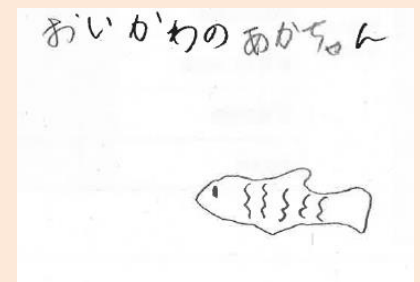 おいかわのあかちゃん